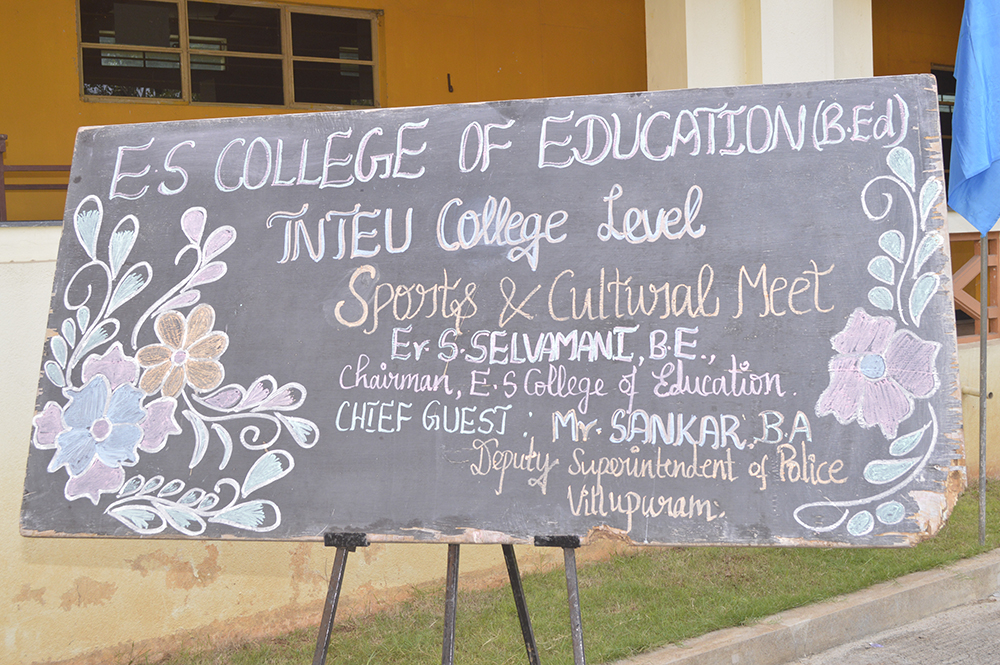 E.S COLLEGE OF EDUCATION (B.Ed)
TNTEU College Level
Sports & Cultural Meet
Er. S. SELVAMANI, B.E.,
Chairman, E.S College of Education.
CHIEF GUEST : Mr. SANKAR, B.A
Deputy Superintendent of Police
Villupuram.